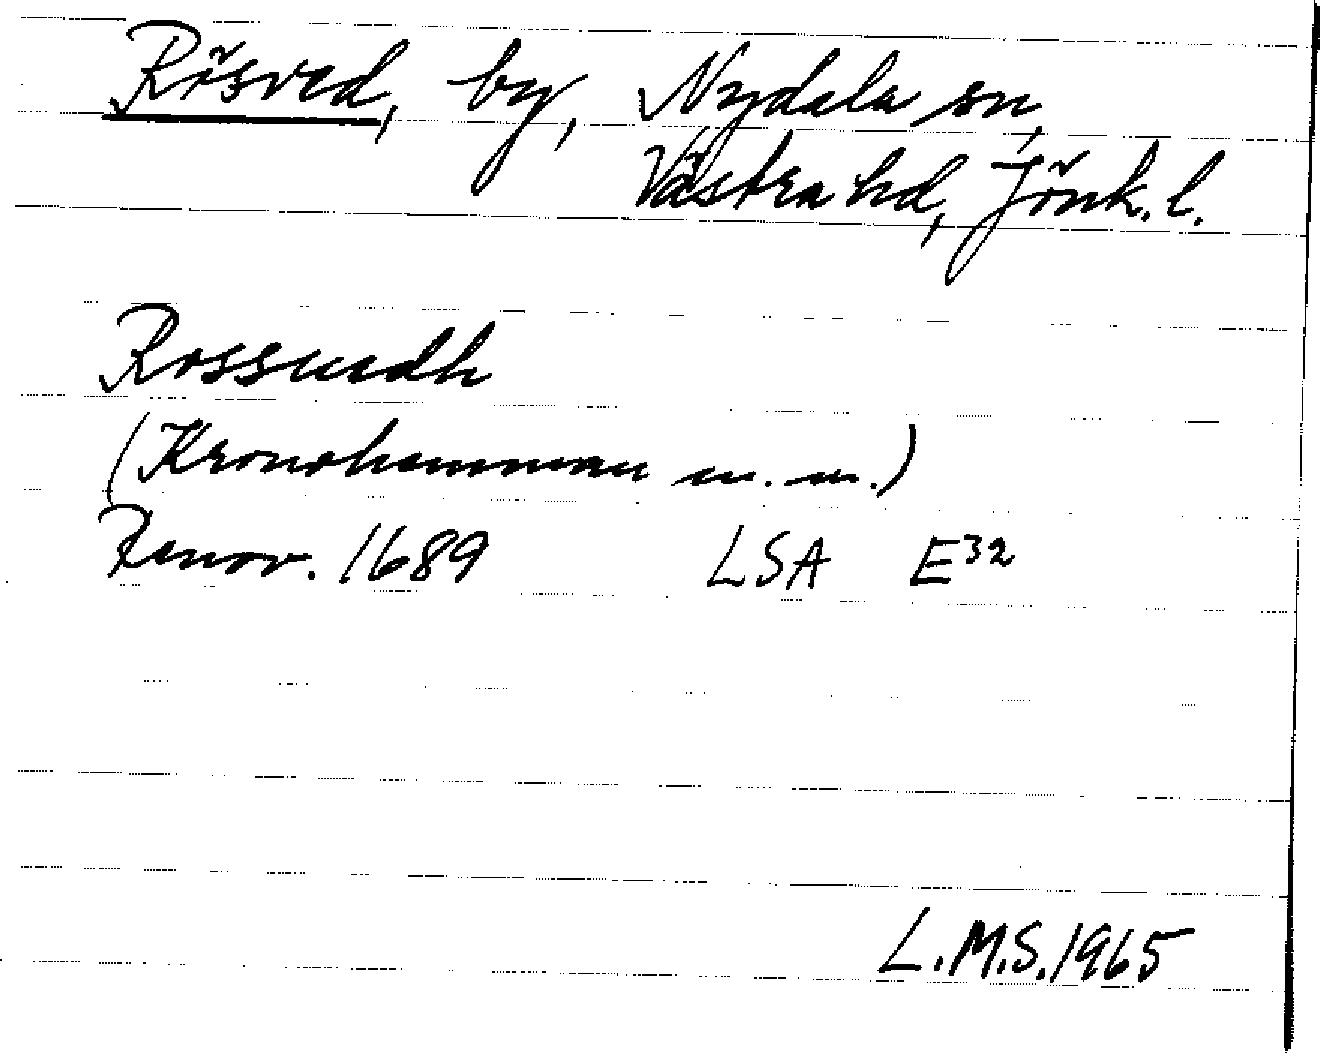 Rösved, by, Nydala sn,
Västra hd, Jönk. l.
Rossuedh
(Kronohemman m. m.)
Renov. 1689 LSA E32
L.M.S. 1965